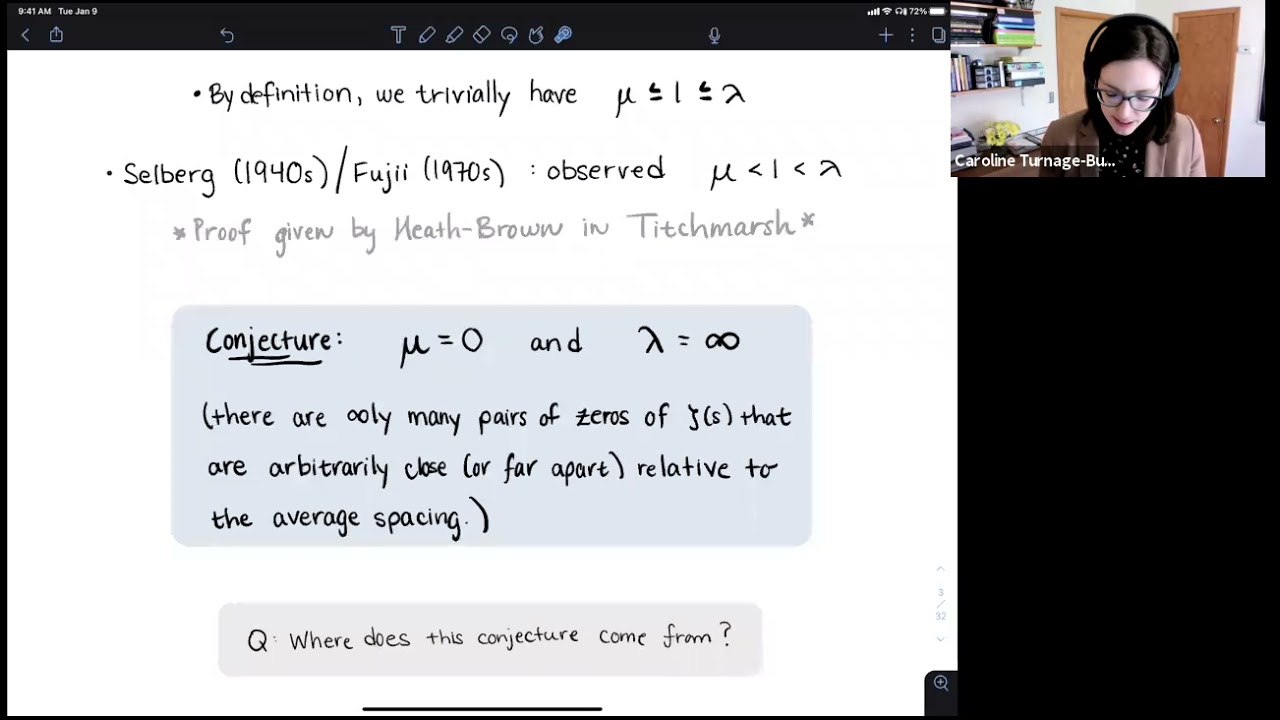 9:41 AM Tue Jan 9
72%
• By definition, we trivially have μ ≤ 1 ≤ λ
• Selberg (1940s) / Fujii (1970s) : observed μ < 1 < λ
*Proof given by Heath-Brown in Titchmarsh*
Conjecture: μ = 0 and λ = ∞
(there are ∞ly many pairs of zeros of ζ(s) that
are arbitrarily close (or far apart) relative to
the average spacing.)
Q: Where does this conjecture come from?
3
/
32
Caroline Turnage-Bu...